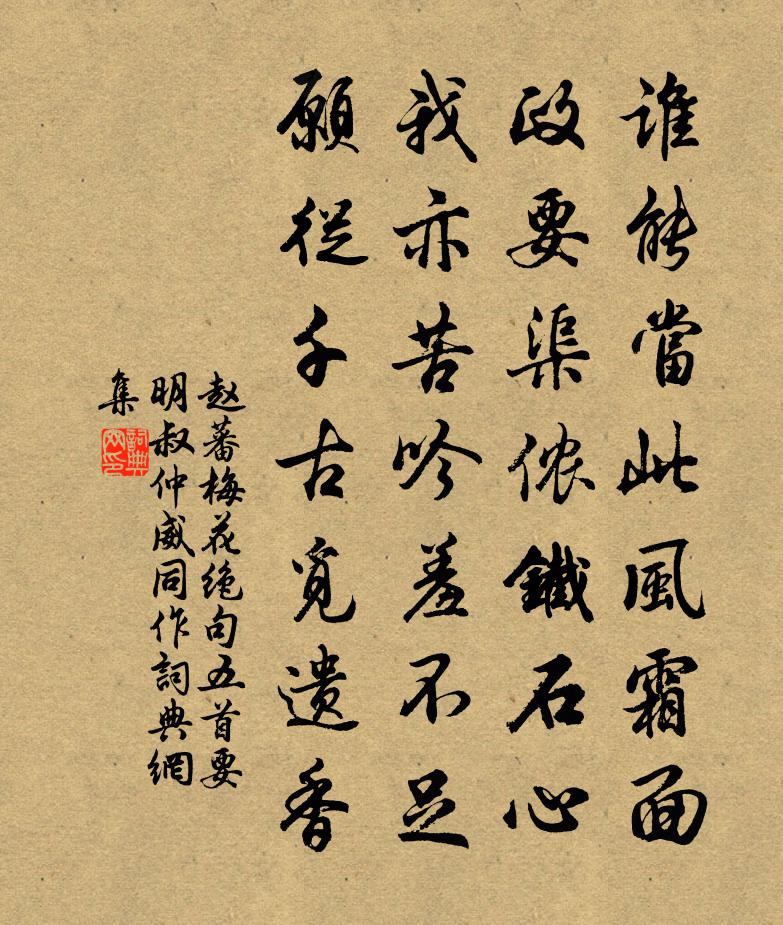 谁能當此風霜面
政要渠侬鐵石心
我亦苦吟羞不足
願從千古覓遺香
赵蕃梅花绝句五首要
明叔仲威同作詞典網
集
詞典網印